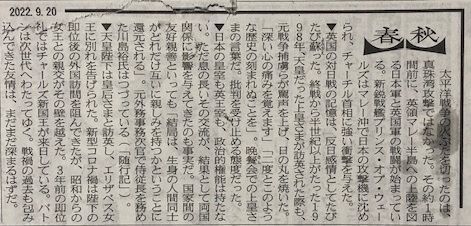 2022.9.20
春秋
太平洋戦争の火ぶたを切ったのは、
真珠湾攻撃ではなかった。その約1時
間前に、英領マレー半島への上陸を図
る日本軍と英国軍の戦闘が始まってい
た。新鋭戦艦プリンス・オブ・ウェー
ルズはマレー沖で日本の攻撃機に沈め
られ、チャーチル首相に強い衝撃を与えた。
▼英国の対日戦の記憶は、反日感情としてたび
たび蘇った。終戦から半世紀以上がたった19
98年、天皇だった上皇さまが訪英された際も、
元戦争捕虜らが背を向け、日の丸を焼いた。
「深い心の痛みを覚えます」「二度とこのよう
な歴史の刻まれぬことを」。晩餐会での上皇さ
まの言葉だ。批判を受け止める態度だった。
▼日本の皇室も英王室も、政治的権能は持たな
い。ただ息の長いその交流が、結果として両国
関係に影響を与えてきたのも事実だ。国家間の
友好親善といっても「結局は、生身の人間同士
がどれだけ互いに親しみを持つかということに
還元される」。元外務事務次官で侍従長を務め
た川島裕氏はつづっている(「随行記」)
▼天皇陛下は皇后さまと訪英し、エリザベス女
王に別れを告げられた。新型コロナ禍は陛下の
即位後の外国訪問を阻んできたが、昭和からの
女王との親交がその壁を越えた。3年前の即位
礼ではチャールズ新国王が来日している。バト
ンは次世代へわたってゆく。戦禍の過去も包み
込んできた友情は、まだまだ深まるはずだ。